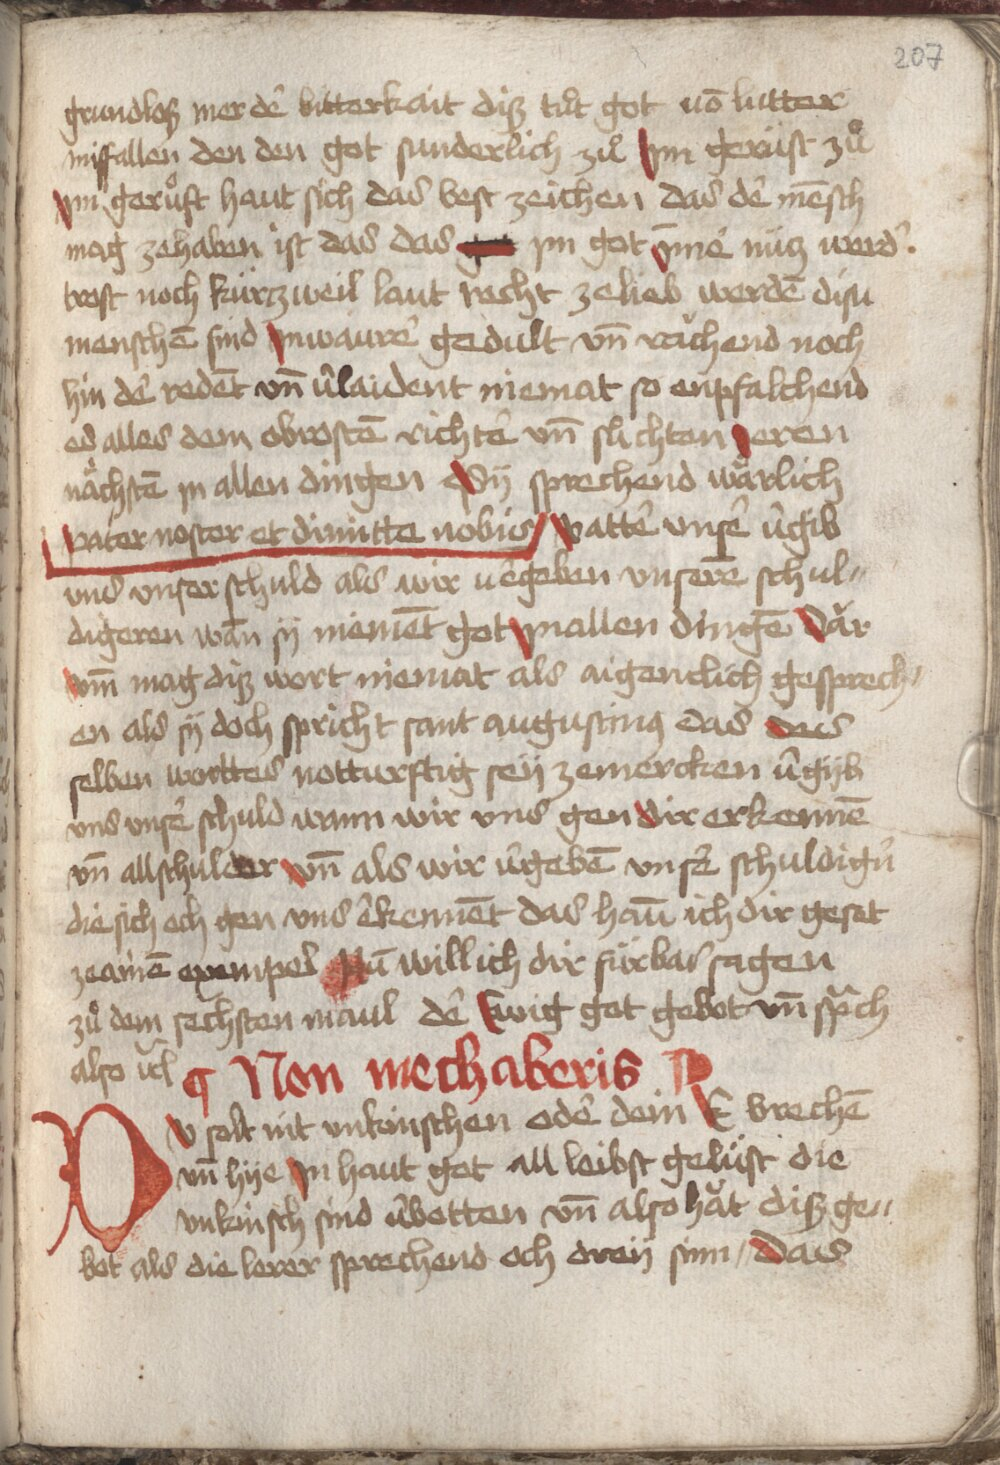 207
grundlosz mer dē bitterkait disz tůt got vō lutter
missfallen den den got sunderlich zů jm gerůft zů
jm gerůft haut sich das best zeichen das dē mēsch
mag zehaben ist das das jm got jmē nütz werd.
trost noch kürtzweil laut recht zelieb werdē disu
menschē sind jn waurē gedult vn̄ rächend noch
hin dē redēt vn̄ v̄laident niemat so enpfalchend
es alles dem obrostē richtē vn̄ slichten jeren
nächstē jn allen dingen Sÿ sprechend wärlich
pater noster et dimitte nobis vattē unsē v̄gib
uns unser schuld als wir v̄gebent unserē schul-
digeren wan̄ sÿ niemēt get jn allen dingē Dar
vm̄ mag disz wort niemat als aigenclich gesprech-
en als sÿ doch spricht sant augustinus das des
selben worttes notturftig seÿ zemercken v̄gÿb
uns unsē schuld wann wir uns gen dir erkennē
vn̄ all schulder vn̄ als wir v̄gebē unsē schuldigū
die sich och gen uns ēkennēt das hau̅ ich dir geset
zeainē exempel Nu̅ will ich dir fürbas sagen
zů dem sechsten maul dē Ewig got gebot vn̄ sprach
also
¶ Non mechaberis
DU solt nit unkünschen odē dein E brechē
vn̄ hÿe jn haut got all leibst gelüst die
unkünsch sind v̄botten vn̄ also hat disz ge-
bot als die lerer sprechend och dreÿ sinn Das